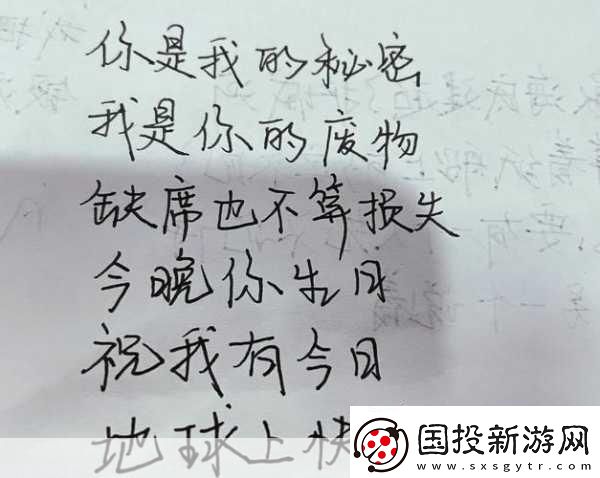 你是我的秘密
我是你的废物
缺席也不算损失
今晚你生日
祝我有今日
地球上快
国投新游网
www.sxsgytr.com